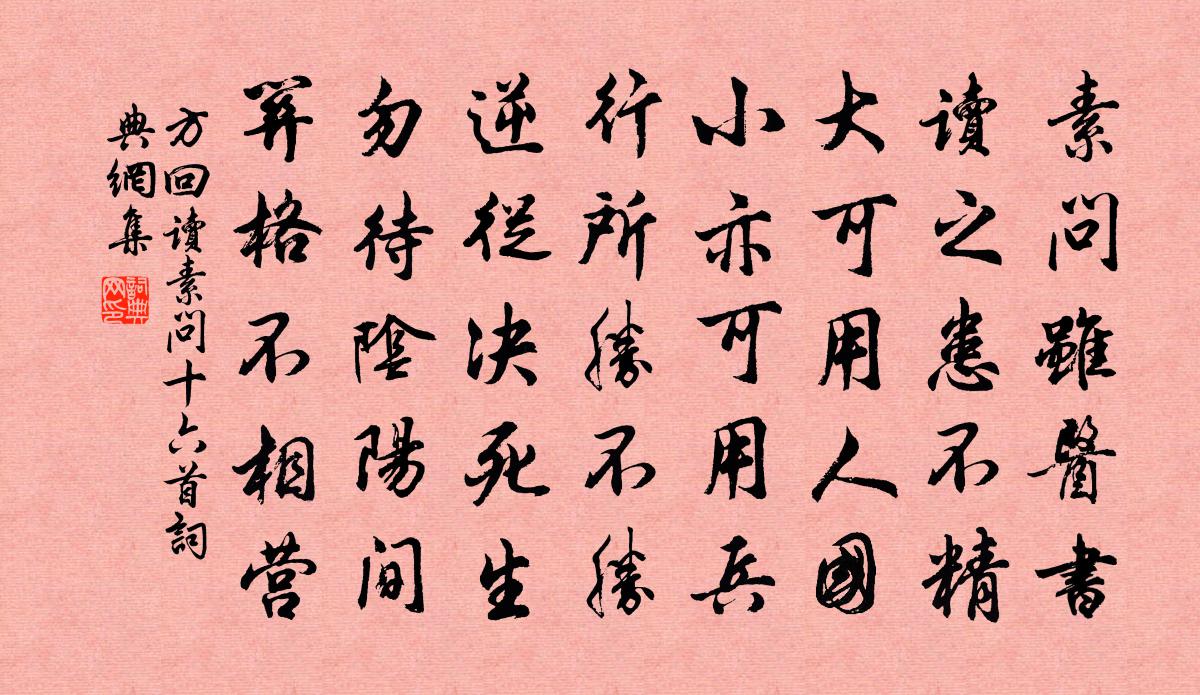 素問雖醫書
讀之患不精
大可用人國
小亦可用兵
行所勝不勝
逆從決死生
勿待陰陽間
關格不相营
方回讀素問十六首詞
典網集
詞典
网印